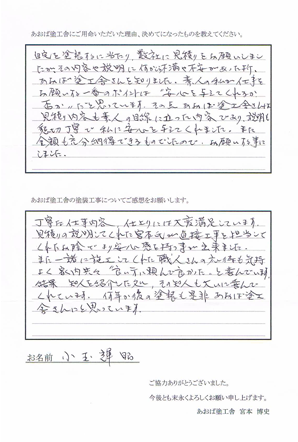 あおば塗工舎にご用命いただいた理由、決めてになったものを教えてください。
自宅を塗装するに当たり、数社に見積りをお願いしまし
たがその内容や説明に何か不満や不安があった折、
あおば塗工舎さんを知りました。素人の私が仕事を
お願いする一番のポイントは "安心を与えてくれるか
否か" だと思っています。その点あおば塗工舎さんは
見積り内容も素人の目線に立った内容であり、説明も
親切丁寧で私に安心を与えてくれました。また
金額も充分納得できるものでしたので、お願いする事に
しました。
あおば塗工舎の塗装工事についてご感想をお願いします。
丁寧な仕事内容、仕上りには大変満足しています。
見積りの説明してくれた宮本氏が直接工事を担当して
くれたお陰でより安心感を持つ事が出来ました。
また一緒に施工してくれた職人さんの対応も気持
よく家内共々 "良い方に頼んで良かった" と喜んでいます。
結果 知人を紹介した処、その知人も大いに喜んで
くれています。何年か後の塗装も是非あおば塗工
舎さんにと思っています。
お名前 小玉 輝昭
ご協力ありがとうございました。
今後とも末永くよろしくお願い申し上げます。
あおば塗工舎 宮本 博史